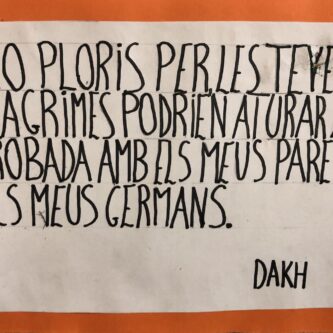 O PLORIS PER LES TEVE
AGRIMES PODRIEN ATURAR
ROBADA AMB ELS MEUS PARE
LS MEUS GERMANS.
DAKH